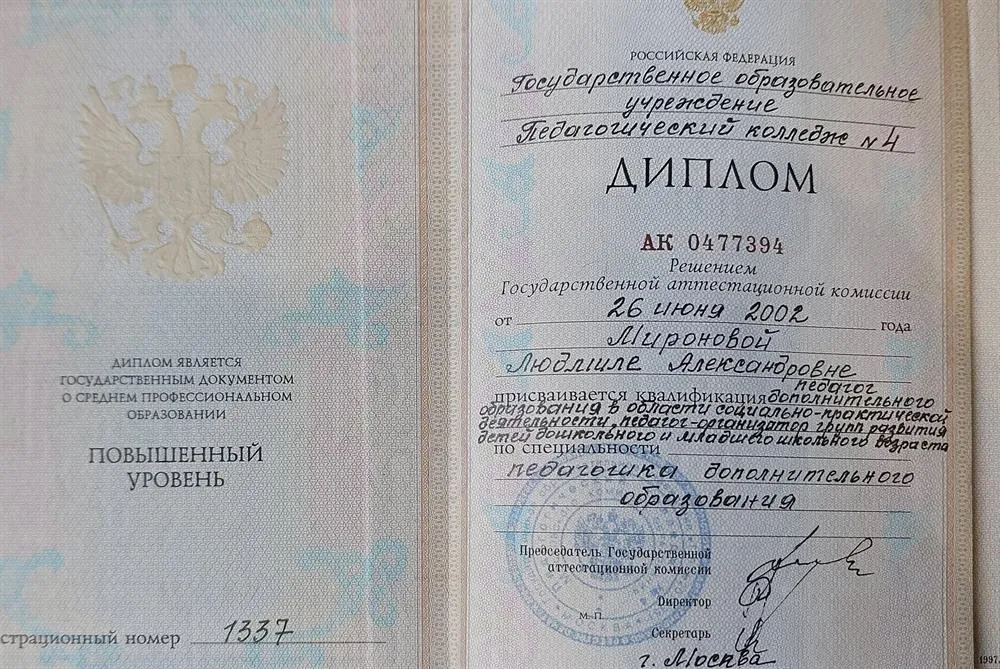 ДИПЛОМ ЯВЛЯЕТСЯ
ГОСУДАРСТВЕННЫМ ДОКУМЕНТОМ
О СРЕДНЕМ ПРОФЕССИОНАЛЬНОМ
ОБРАЗОВАНИИ
ПОВЫШЕННЫЙ
УРОВЕНЬ
страционный номер 1337
РОССИЙСКАЯ ФЕДЕРАЦИЯ
Государственное образовательное
учреждение
Педагогический колледж № 4
ДИПЛОМ
АК 0477394
Решением
Государственной аттестационной комиссии
от 26 июня 2002 года
Мироновой
Людмиле Александровне
педагог
присваивается квалификация дополнительного
образования в области социально-практической
деятельности, педагог-организатор групп развития
детей дошкольного и младшего школьного возраста
по специальности
педагогика дополнительного
образования
Председатель Государственной
аттестационной комиссии
Директор
М. П.
Секретарь
г. Москва
1997.